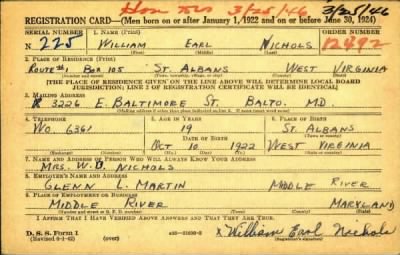 Hon Dis 3/25/46 3/25/46
REGISTRATION CARD—(Men born on or after January 1, 1922 and on or before June 30, 1924)
SERIAL NUMBER 1. NAME (Print) ORDER NUMBER
N 225 WILLIAM EARL NICHOLS 12492
(First) (Middle) (Last)
2. PLACE OF RESIDENCE (Print)
ROUTE #1 BOX 105 ST. ALBANS WEST VIRGINIA
(Number and street) (Town, township, village, or city) (County) (State)
[THE PLACE OF RESIDENCE GIVEN ON THE LINE ABOVE WILL DETERMINE LOCAL BOARD
JURISDICTION; LINE 2 OF REGISTRATION CERTIFICATE WILL BE IDENTICAL]
3. MAILING ADDRESS
3226 E. BALTIMORE ST. BALTO. MD.
4. TELEPHONE 5. AGE IN YEARS 6. PLACE OF BIRTH
WO. 6361 19 ST. ALBANS
DATE OF BIRTH (Town or county)
OCT 10 1922 WEST VIRGINIA
(Exchange) (Number) (Mo.) (Day) (Yr.) (State or country)
7. NAME AND ADDRESS OF PERSON WHO WILL ALWAYS KNOW YOUR ADDRESS
MRS. W. D. NICHOLS
8. EMPLOYER'S NAME AND ADDRESS
GLENN L. MARTIN MIDDLE RIVER
9. PLACE OF EMPLOYMENT OR BUSINESS
MIDDLE RIVER MARYLAND
(Number and street or R. F. D. number) (Town) (County) (State)
I AFFIRM THAT I HAVE VERIFIED ABOVE ANSWERS AND THAT THEY ARE TRUE.
D. S. S. Form 1
(Revised 6-1-42) (over) x William Earl Nichols
(Registrant's signature)